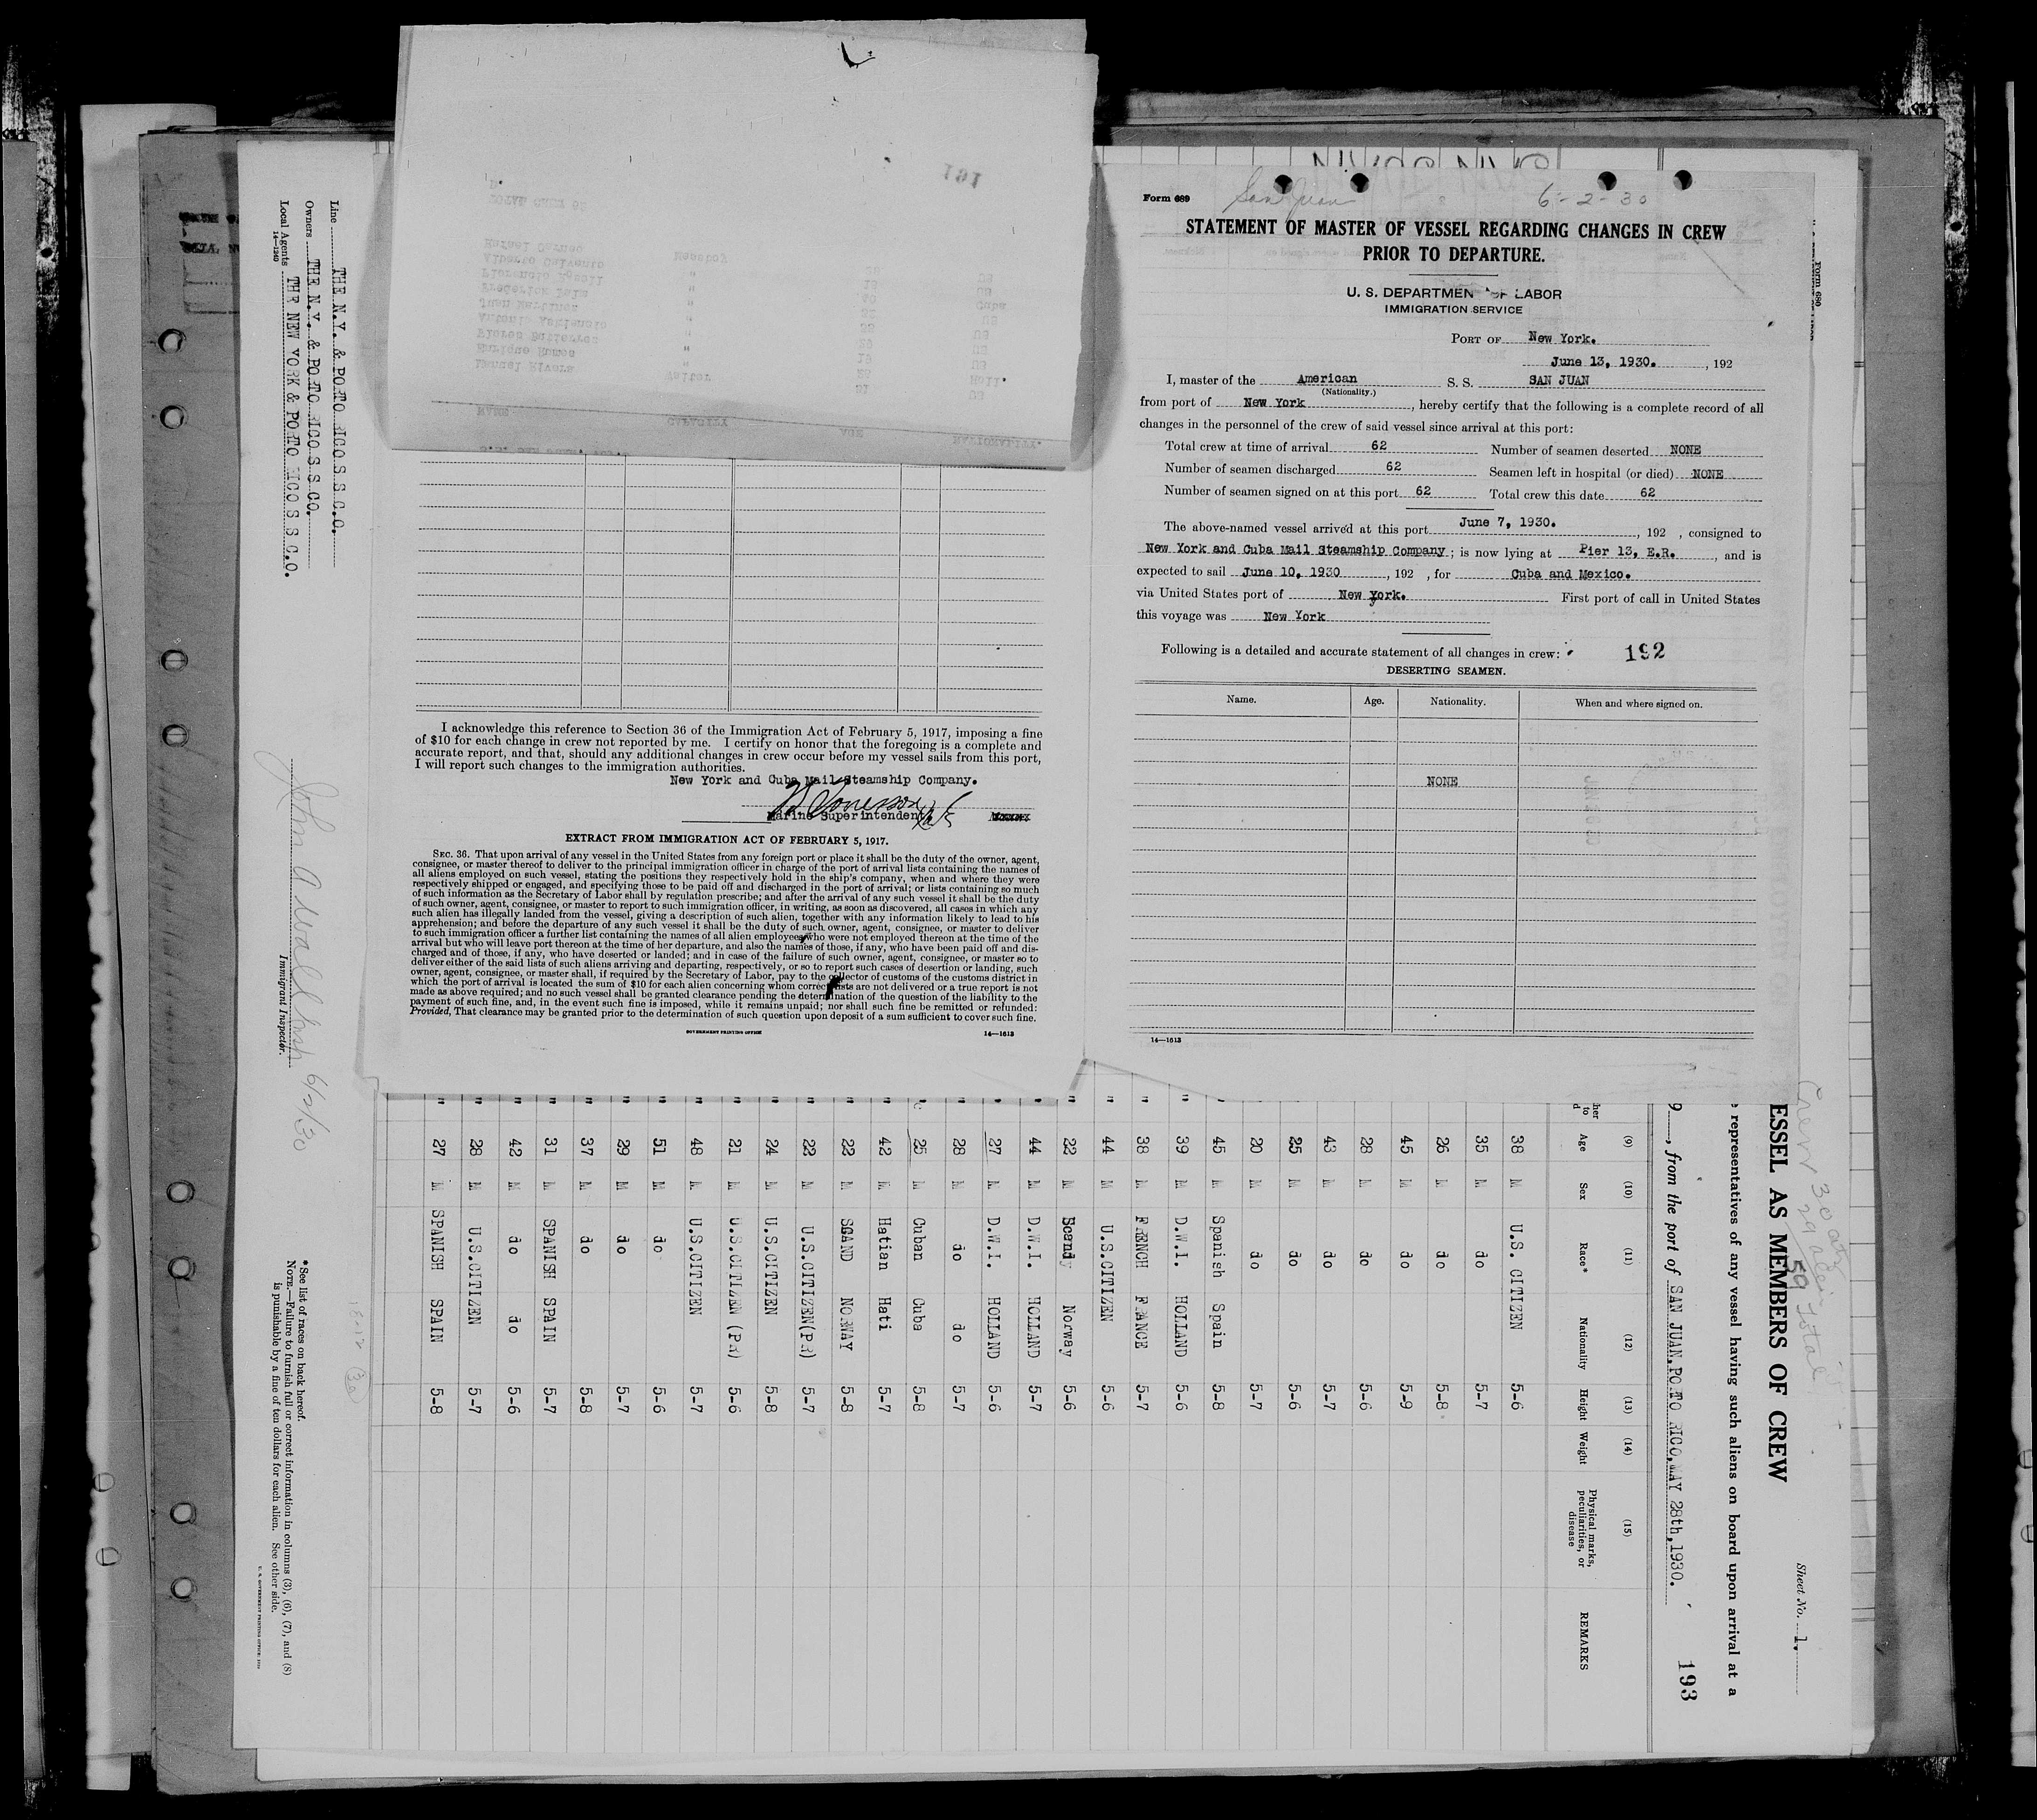 Form 689
San Juan 6-2-30
STATEMENT OF MASTER OF VESSEL REGARDING CHANGES IN CREW
PRIOR TO DEPARTURE.
U. S. DEPARTMENT OF LABOR
IMMIGRATION SERVICE
PORT OF New York.
June 13, 1930. , 192
I, master of the American S. S. SAN JUAN
(Nationality.)
from port of New York , hereby certify that the following is a complete record of all
changes in the personnel of the crew of said vessel since arrival at this port:
Total crew at time of arrival 62 Number of seamen deserted NONE
Number of seamen discharged 62 Seamen left in hospital (or died) NONE
Number of seamen signed on at this port 62 Total crew this date 62
The above-named vessel arrived at this port June 7, 1930. , 192 , consigned to
New York and Cuba Mail Steamship Company ; is now lying at Pier 13, E.R. , and is
expected to sail June 10, 1930 , 192 , for Cuba and Mexico.
via United States port of New York. First port of call in United States
this voyage was New York
Following is a detailed and accurate statement of all changes in crew: 192
DESERTING SEAMEN.
Name. Age. Nationality. When and where signed on.
NONE
14—1613
I acknowledge this reference to Section 36 of the Immigration Act of February 5, 1917, imposing a fine
of $10 for each change in crew not reported by me. I certify on honor that the foregoing is a complete and
accurate report, and that, should any additional changes in crew occur before my vessel sails from this port,
I will report such changes to the immigration authorities.
New York and Cuba Mail Steamship Company.
Marine Superintendent
EXTRACT FROM IMMIGRATION ACT OF FEBRUARY 5, 1917.
SEC. 36. That upon arrival of any vessel in the United States from any foreign port or place it shall be the duty of the owner, agent,
consignee, or master thereof to deliver to the principal immigration officer in charge of the port of arrival lists containing the names of
all aliens employed on such vessel, stating the positions they respectively hold in the ship's company, when and where they were
respectively shipped or engaged, and specifying those to be paid off and discharged in the port of arrival; or lists containing so much
of such information as the Secretary of Labor shall by regulation prescribe; and after the arrival of any such vessel it shall be the duty
of such owner, agent, consignee, or master to report to such immigration officer, in writing, as soon as discovered, all cases in which any
such alien has illegally landed from the vessel, giving a description of such alien, together with any information likely to lead to his
apprehension; and before the departure of any such vessel it shall be the duty of such owner, agent, consignee, or master to deliver
to such immigration officer a further list containing the names of all alien employees who were not employed thereon at the time of the
arrival but who will leave port thereon at the time of her departure, and also the names of those, if any, who have been paid off and dis-
charged and of those, if any, who have deserted or landed; and in case of the failure of such owner, agent, consignee, or master so to
deliver either of the said lists of such aliens arriving and departing, respectively, or so to report such cases of desertion or landing, such
owner, agent, consignee, or master shall, if required by the Secretary of Labor, pay to the collector of customs of the customs district in
which the port of arrival is located the sum of $10 for each alien concerning whom correct lists are not delivered or a true report is not
made as above required; and no such vessel shall be granted clearance pending the determination of the question of the liability to the
payment of such fine, and, in the event such fine is imposed, while it remains unpaid; nor shall such fine be remitted or refunded:
Provided, That clearance may be granted prior to the determination of such question upon deposit of a sum sufficient to cover such fine.
GOVERNMENT PRINTING OFFICE 14—1613
Form 680
ESSEL AS MEMBERS OF CREW
Sheet No. 1.
representatives of any vessel having such aliens on board upon arrival at a
9 , from the port of SAN JUAN, PORTO RICO, MAY 28th, 1930.
193
(9) (10) (11) (12) (13) (14) (15)
Age Sex Race* Nationality Height Weight Physical marks, peculiarities, or disease REMARKS
38 M U.S. CITIZEN 5-6
35 M do 5-7
26 M do 5-8
45 M do 5-9
28 M do 5-6
43 M do 5-7
25 M do 5-6
20 M do 5-7
45 M Spanish Spain 5-8
" 39 M D.W.I. HOLLAND 5-6
" 38 M FRENCH FRANCE 5-7
" 44 M U.S.CITIZEN 5-6
" 22 M Scandy Norway 5-6
" 44 M D.W.I. HOLLAND 5-7
" 27 M D.W.I. HOLLAND 5-6
" 28 M do do 5-7
25 M Cuban Cuba 5-8
" 42 M Hatian Hati 5-7
" 22 M SCAND NORWAY 5-8
" 22 M U.S.CITIZEN(PR) 5-7
" 24 M U.S.CITIZEN 5-8
" 21 M U.S.CITIZEN (PR) 5-6
" 48 M U.S.CITIZEN 5-7
" 51 M do 5-6
" 29 M do 5-7
" 37 M do 5-8
" 31 M SPANISH SPAIN 5-7
" 42 M do do 5-6
" 28 M U.S.CITIZEN 5-7
" 27 M SPANISH SPAIN 5-8
Line THE N.Y. & PORTO RICO S.S.C.O.
Owners THE N.Y. & PORTO RICO S.S.CO.
Local Agents THE NEW YORK & PORTO RICO S S C.O.
14—1240
John A Wallbush 6/2/30
Immigrant Inspector.
*See list of races on back hereof.
NOTE.—Failure to furnish full or correct information in columns (3), (6), (7), and (8)
is punishable by a fine of ten dollars for each alien. See other side.